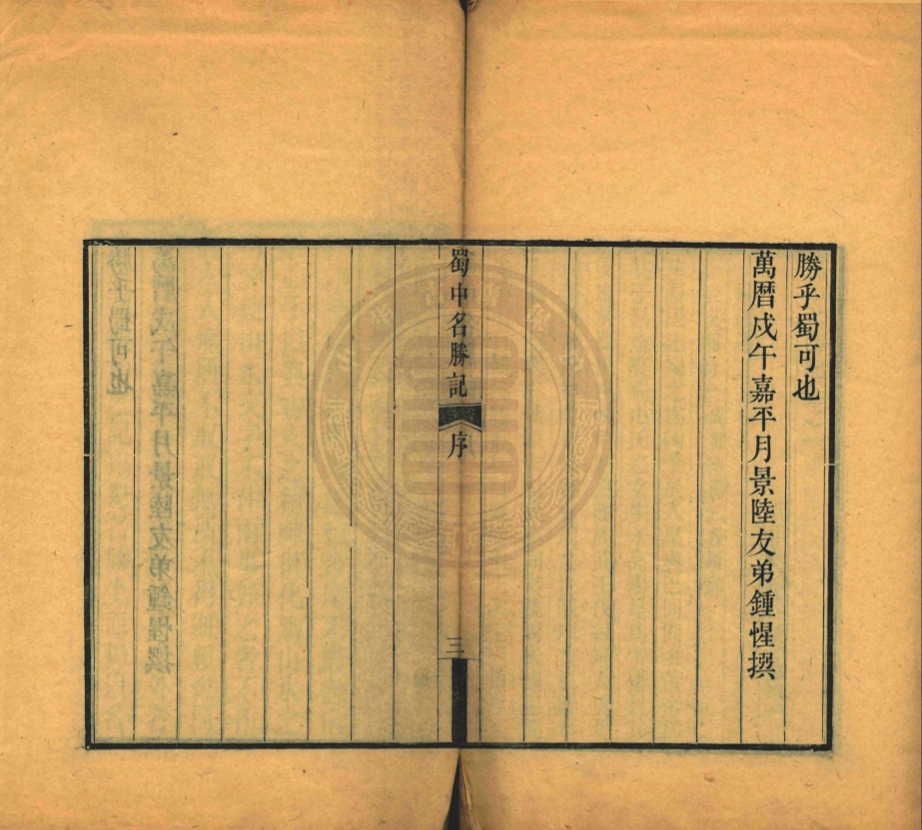 勝乎蜀可也
萬曆戊午嘉平月景陵友弟鍾惺撰
蜀中名勝記
序
三